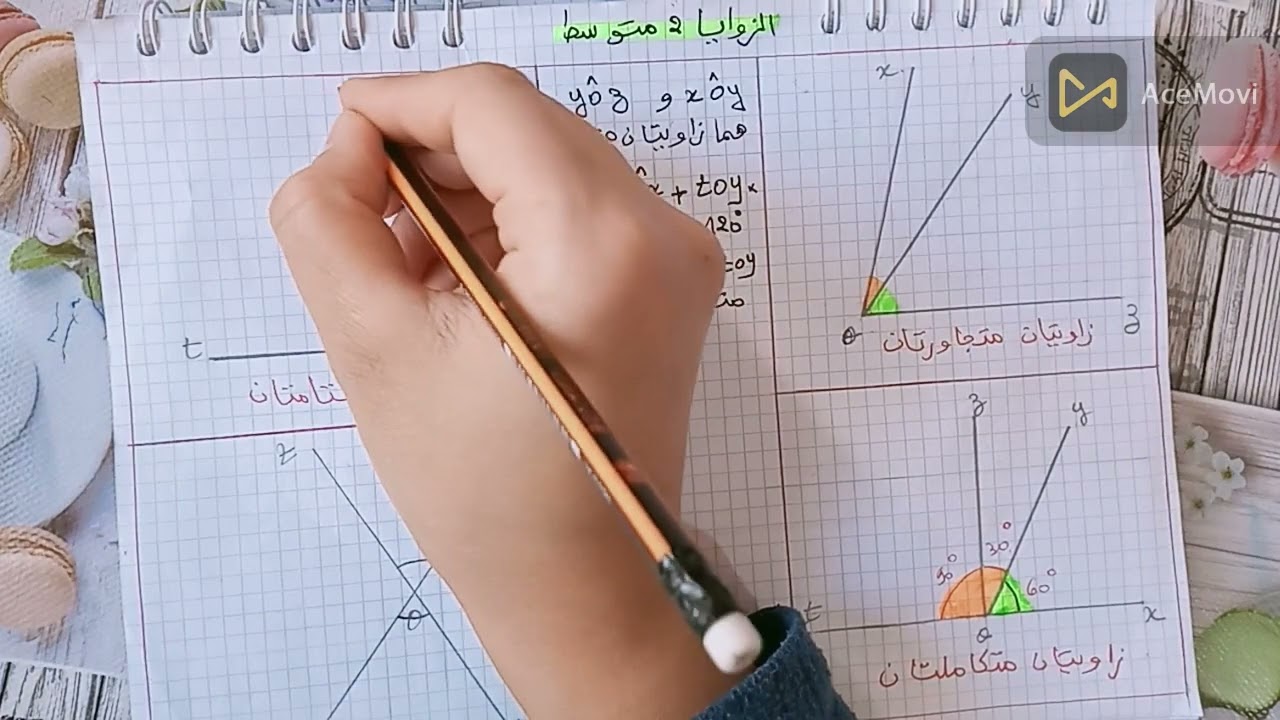 الزوايا 2 متوسط
AceMovi
x
y
z
O
زاويتان متجاورتان
xôy و yôz
هما زاويتان
+ tôy
120°
oy
t
تتامتان
z
y
90°
30°
60°
t
O
x
زاويتان متكاملتان
z
O